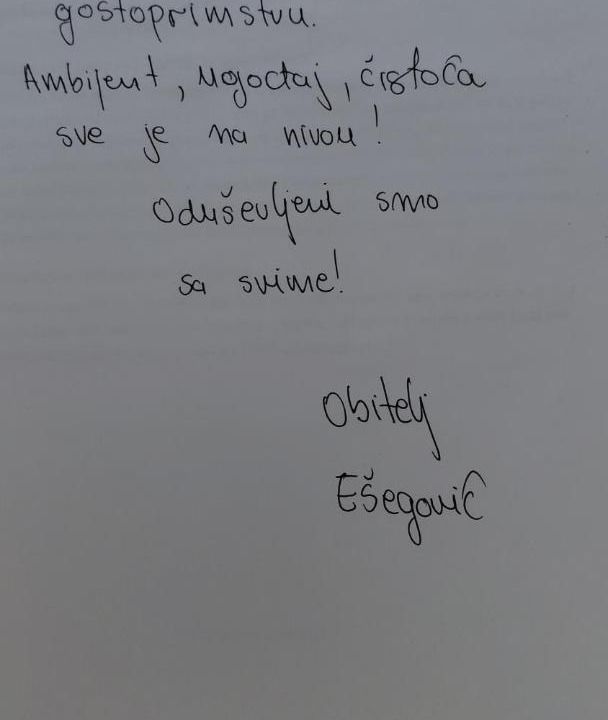 gostoprimstvu.
Ambijent, ugođaj, čistoća
sve je na nivou!
Oduševljeni smo
sa svime!
Obitelj
Ešegović